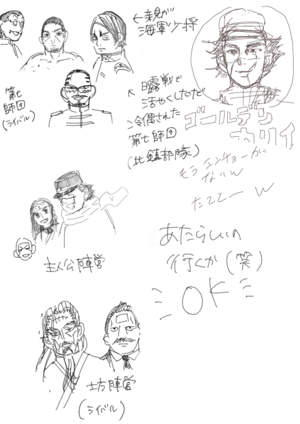 ←親が
海軍少将
第七師団
(ライバル)
↖日露戦で
活やくしたけど
冷偶された
第七師団
(北鎮部隊)
ゴールデン
カムイ
もうエンチョーが
ないw
たてーw
あたらしいの
行くか(笑)
OK
主人公陣営
土方陣営
(ライバル)